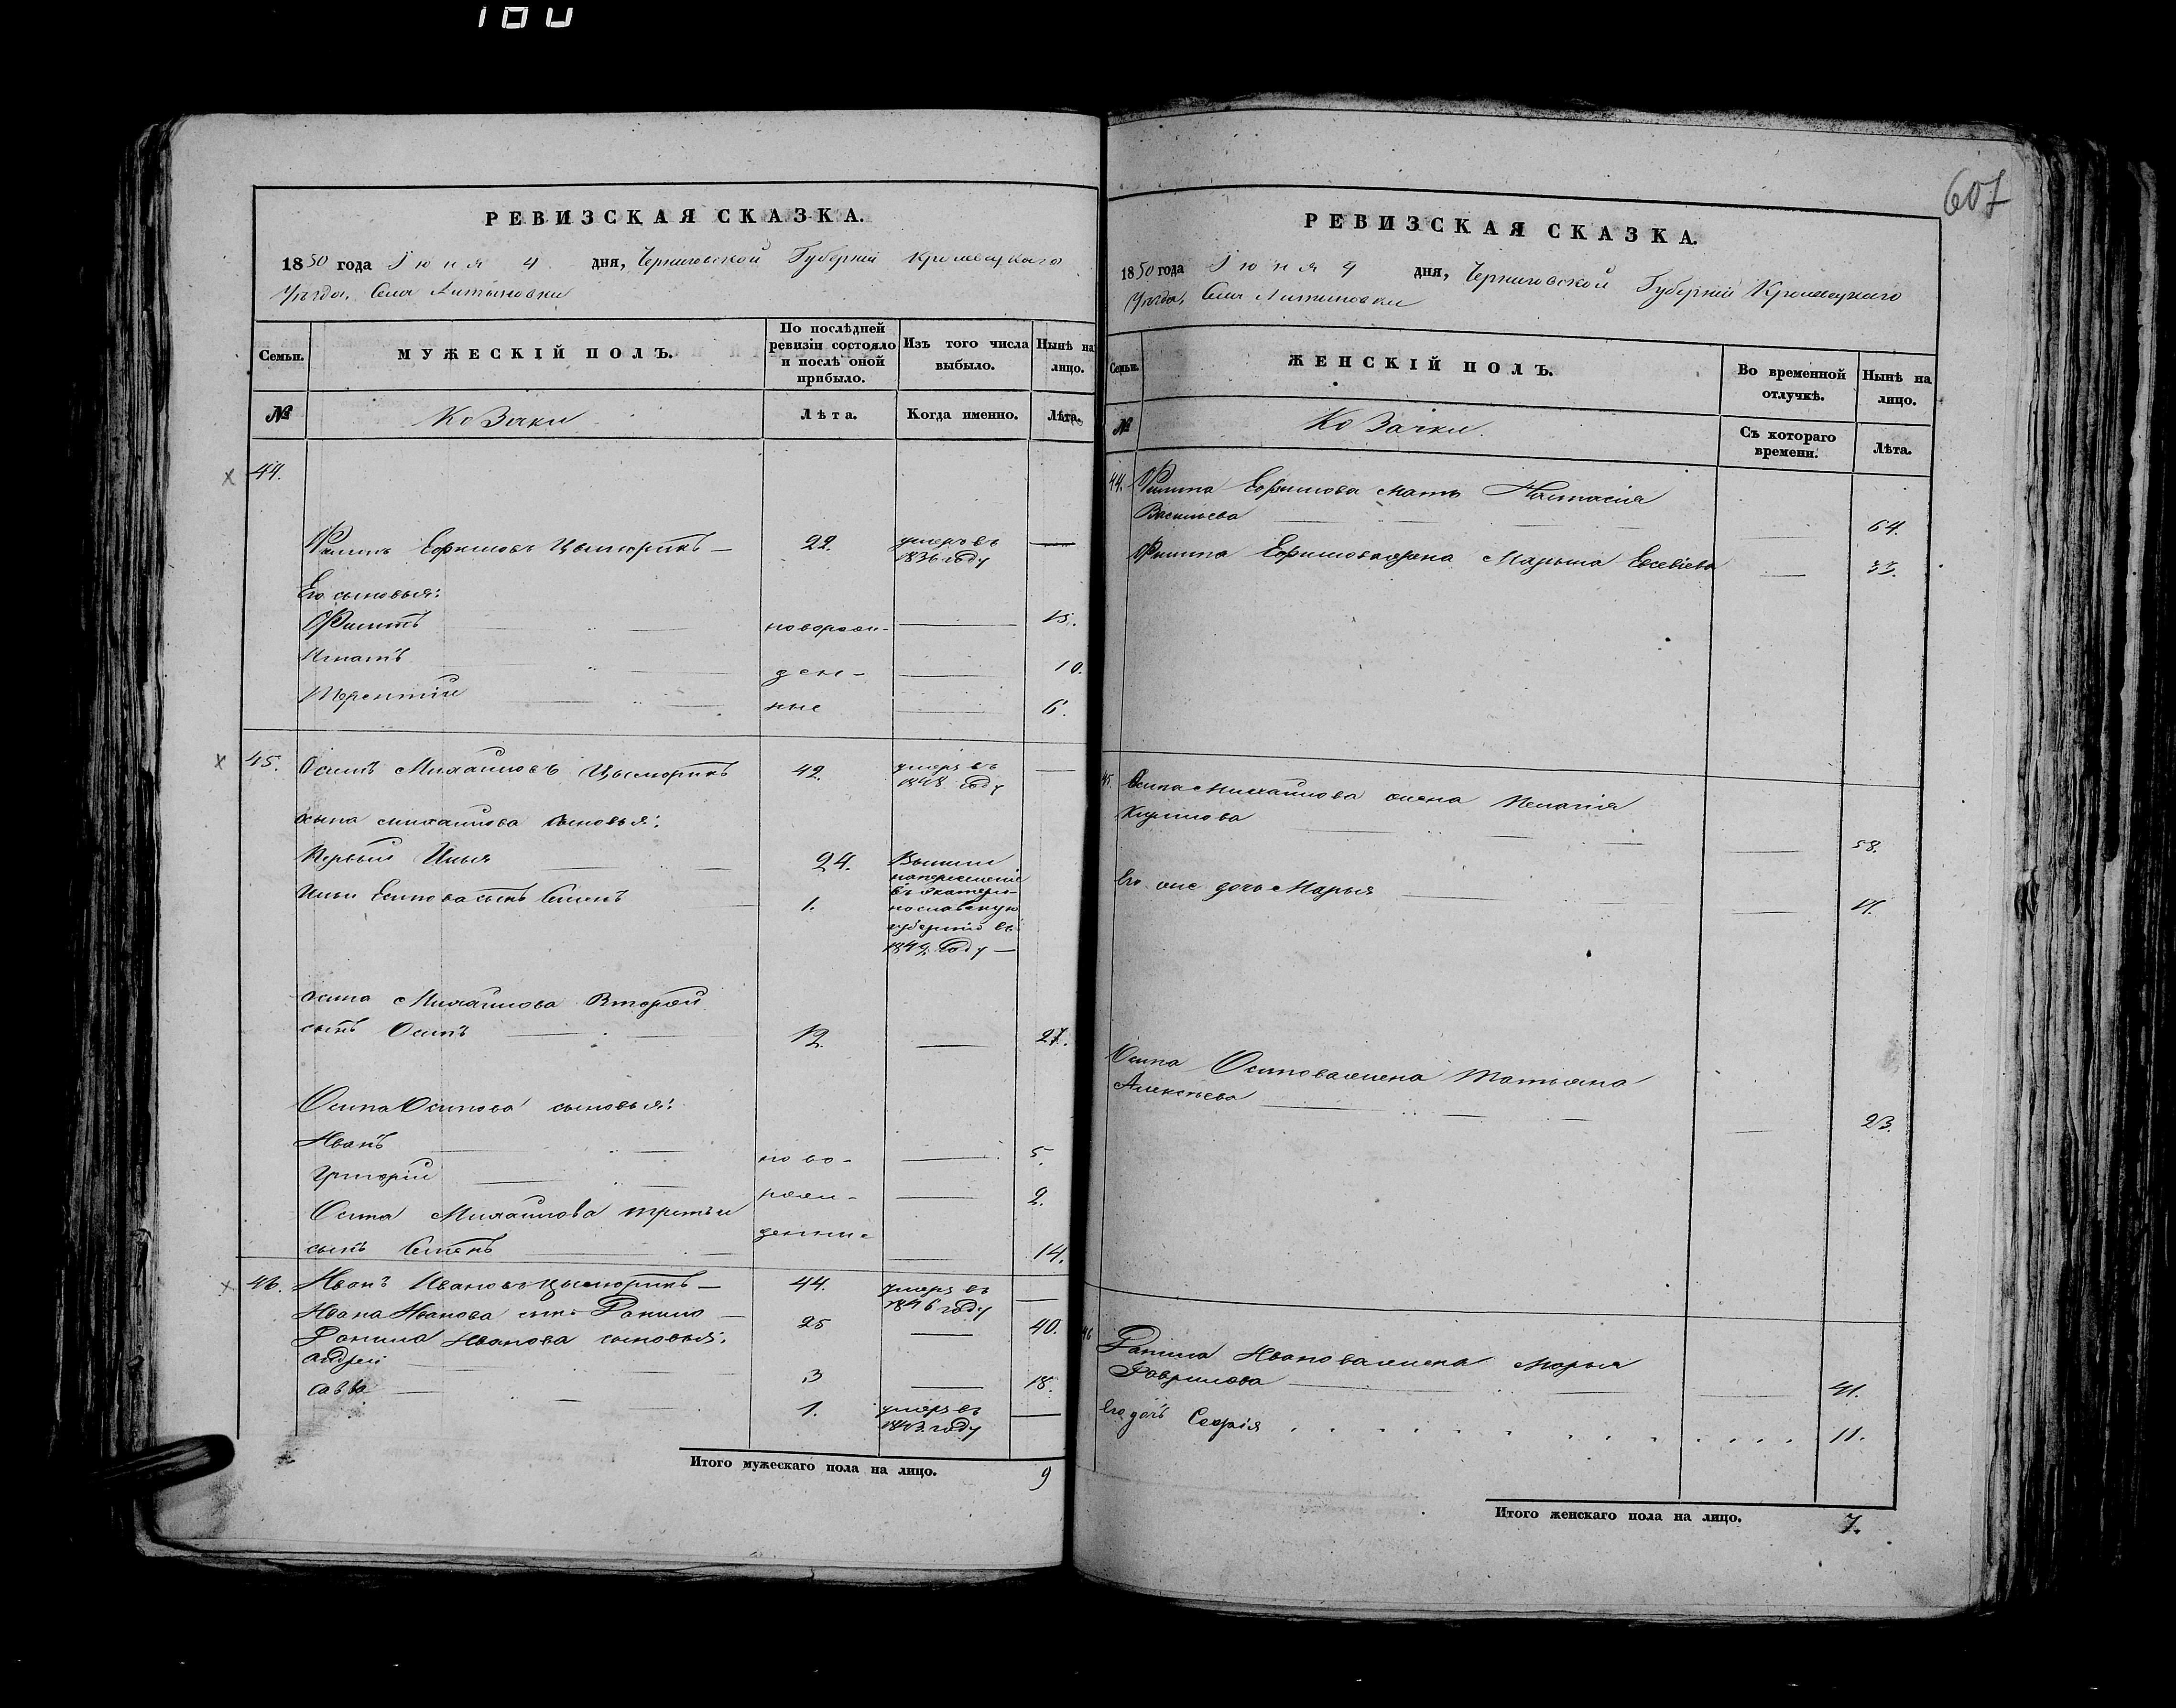 180
607
РЕВИЗСКАЯ СКАЗКА.
1850 года Іюня 4 дня, Черниговской Губерніи Кролевецкаго
Уѣзда, Села Литвиновки
Семьи.
МУЖЕСКІЙ ПОЛЪ.
По послѣдней ревизіи состояло и послѣ оной прибыло.
Изъ того числа выбыло.
Нынѣ на лицо.
№
Козаки
Лѣта.
Когда именно.
Лѣта.
44.
Ефимовъ 22. умеръ въ
1836 году
Его сыновья:
Филипъ новорож- 15.
Игнатъ ден- 10.
Терентій ные 6.
45. Осипъ Михайловъ 42. умеръ въ
1848 году
Осипа Михайлова сыновья:
Первый Илья 24. Вышли
на переселеніе
Ильи Есипова сынъ Семенъ 1. въ Екатери-
нославскую
губернію въ
1849 году
Осипа Михайлова Второй
сынъ Осипъ 12. 27.
Осипа Осипова сыновья:
Иванъ ново- 5.
Григорій рож- 2.
Осипа Михайлова третьи
денные
сынъ Семенъ 14.
46. Иванъ Ивановъ 44. умеръ въ
1846 году
Ивана Иванова сынъ Данило 25 40.
Данила Иванова сыновья:
Андрей 3 18.
Савва 1. умеръ въ
1843 году
Итого мужескаго пола на лицо. 9
РЕВИЗСКАЯ СКАЗКА.
1850 года Іюня 4 дня, Черниговской Губерніи Кролевецкаго
Уѣзда, Села Литвиновки
Семьи.
ЖЕНСКІЙ ПОЛЪ.
Во временной отлучкѣ.
Нынѣ на лицо.
№
Козачки.
Съ котораго времени.
Лѣта.
44. Ефимова мать Настасія
Васильева 64.
Ефимова жена Марьша Евсевіева 33.
45. Осипа Михайлова жена Пелагія
Кирилова 58.
Его же дочь Марья 17.
Осипа Осипова жена Татьяна
Алексѣева 23.
46 Данила Иванова жена Марья
Гаврилова 41.
Его дочь Софія 11.
Итого женскаго пола на лицо. 7.